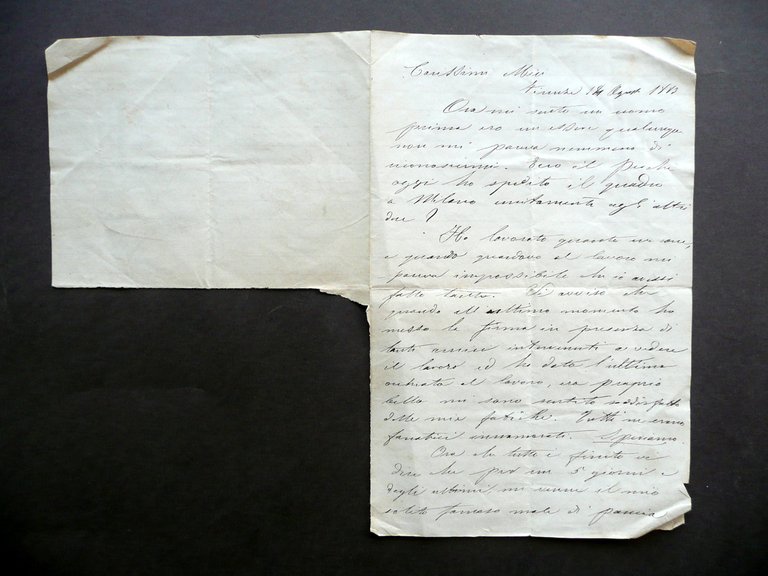 Carissimi Miei
Firenze 14 Agosto 1883
Ora mi sento un uomo
prima ero un essere qualunque
non mi pareva nemmeno di
riconoscermi. Ecco il perche
oggi ho spedito il quadro
a Milano unitamente agli altri
due
Ho lavorato quanto un cane,
e quando guardavo il lavoro mi
pareva impossibile che io avessi
fatto tutto. Vi avviso che
quando all'ultimo momento ho
messo la firma in presenza di
tanti amici intervenuti a vedere
il lavoro ed ho dato l'ultima
occhiata al lavoro, era proprio
bello mi sono sentito soddisfatto
delle mie fatiche. Tutti ne erano
fanatici innamorati. Speriamo
Ora che tutto è finito vi
dirò che per un 5 giorni e
degli ultimi mi venne il mio
solito famoso male di pancia